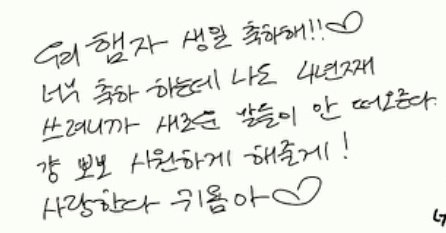 우리 햄자 생일 축하해!!♡
너무 축하 하는데 나도 4년째
쓰려니까 새로운 말들이 안 떠오른다.
걍 뽀뽀 시원하게 해줄게!
사랑한다 귀욤아♡